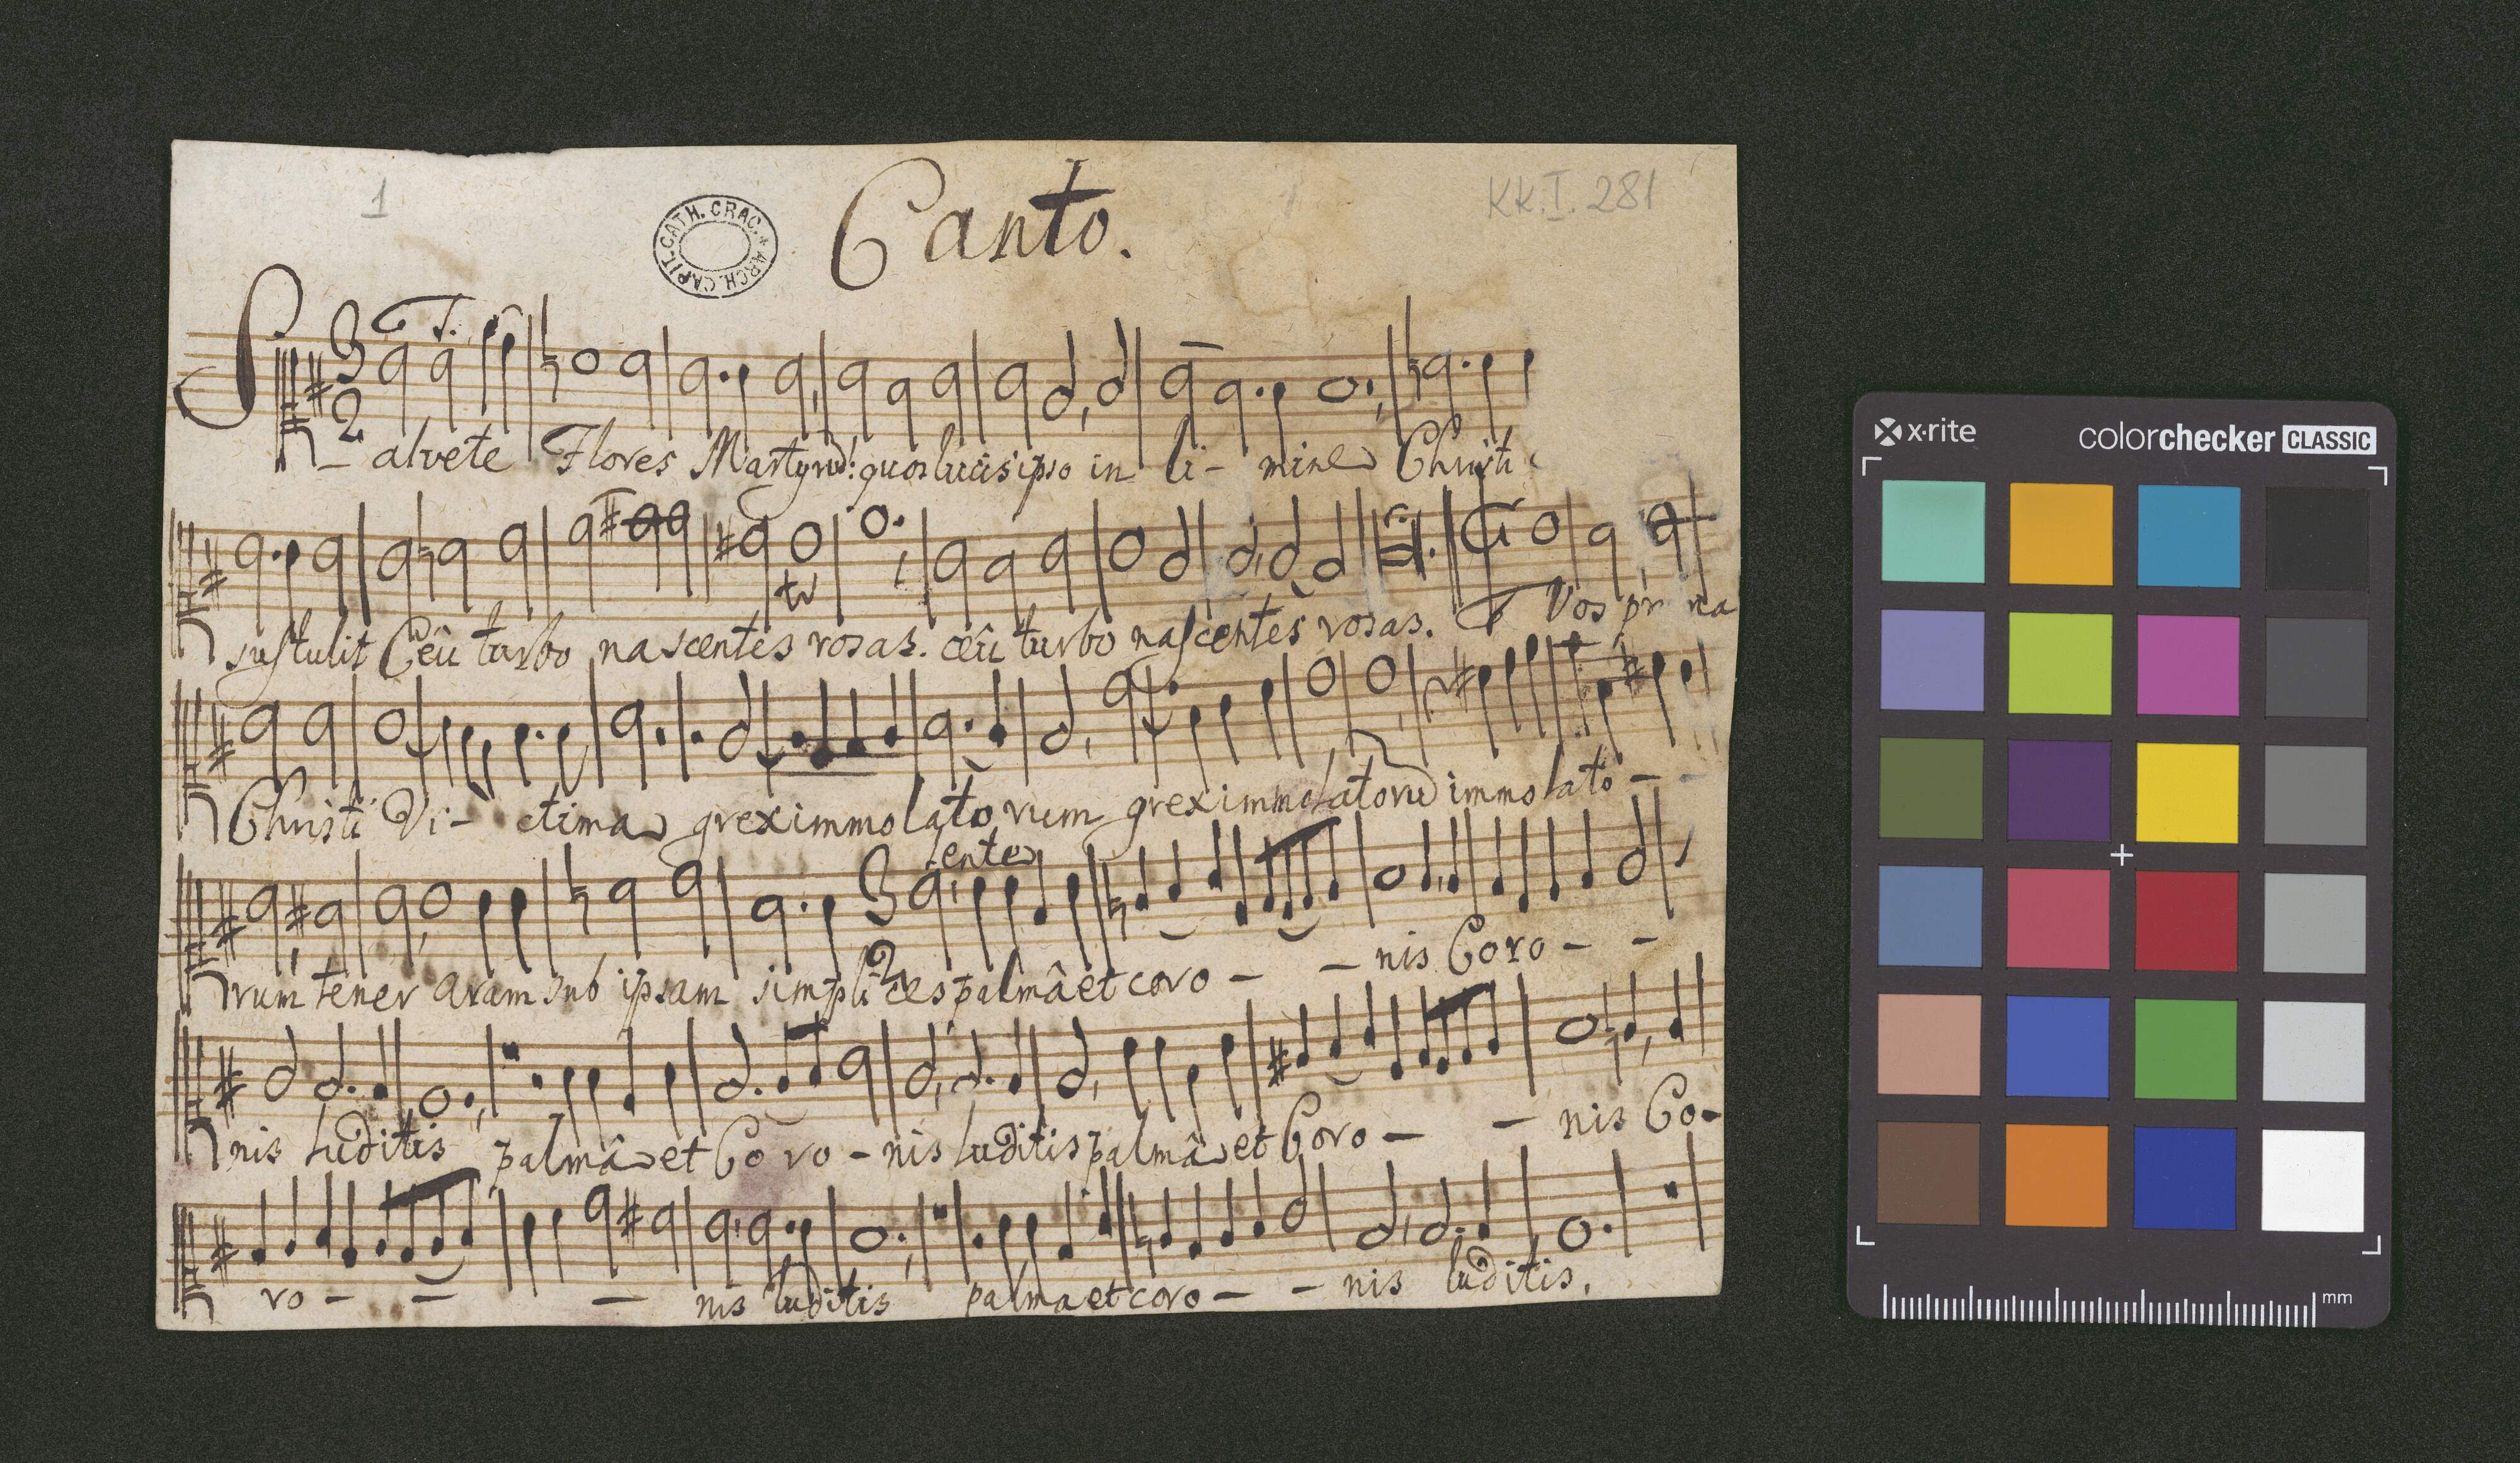 1
Canto.
KK.I.281
CAPIT. CATH. CRAC. * ARCH.
3 T.
2
Salvete Flores Martyrũ: quos lucis ipso in li- mine Christi
tr
sustulit Ceû turbo nascentes rosas. ceû turbo nascentes rosas. T Vos pri ma
Christi Vi- ctima grex immolatorum grex immolatorũ immolato - -
lente
3
2
rum tener aram sub ipsam simplices palmâ et coro - - nis Coro - -
nis luditis palmâ et Co ro - nis luditis palmâ et Coro - - nis Co-
ro - - - nis luditis palma et coro - - nis luditis.
x·rite
colorchecker CLASSIC
mm